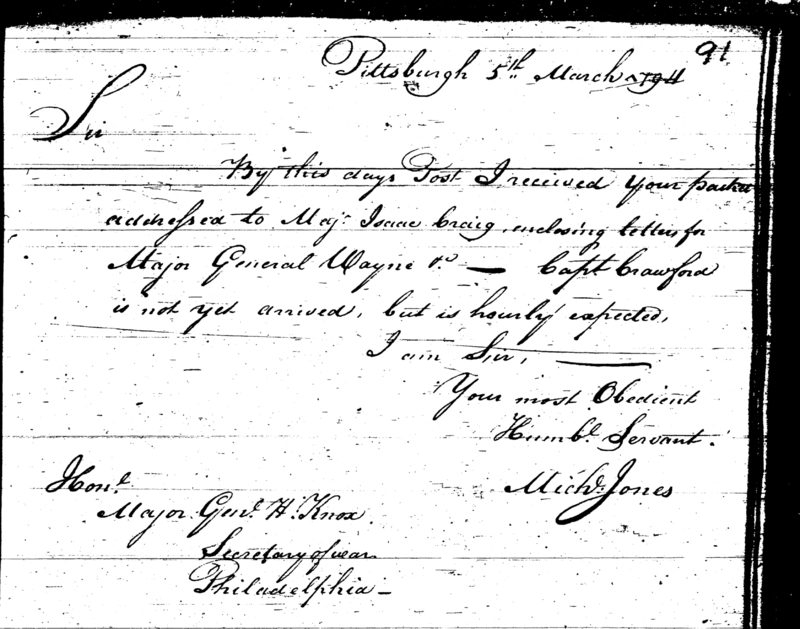 91
Pittsburgh 5th March 1794
Sir
By this days Post I received Your packet
addressed to Maj. Isaac Craig, enclosing letters for
Major General Wayne &c — Capt Crawford
is not yet arrived, but is hourly expected,
I am Sir, —
Your most Obedient
Humble. Servant.
Michl. Jones
Honl.
Major Genl. H. Knox
Secretary of war
Philadelphia –